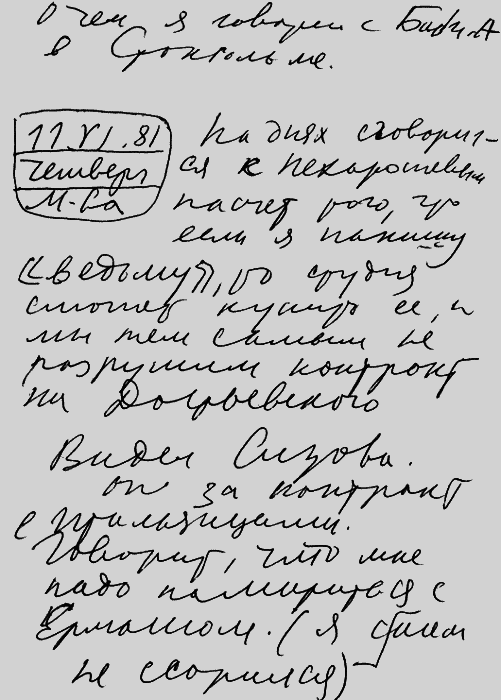 О чем я говорил с Биби А
в Стокгольме.
11.VI.81
Четверг
М-ва
На днях сговорил-
ся с Некарошевым
насчет того, что
если я напишу
«Ведьму», то студия
сможет купить ее, и
мы тем самым не
разрушим контракт
на Достоевского
Видел Сизова.
Он за контракт
с итальянцами.
Говорит, что мне
надо помириться с
Ермашом. (я с ним
не ссорился)